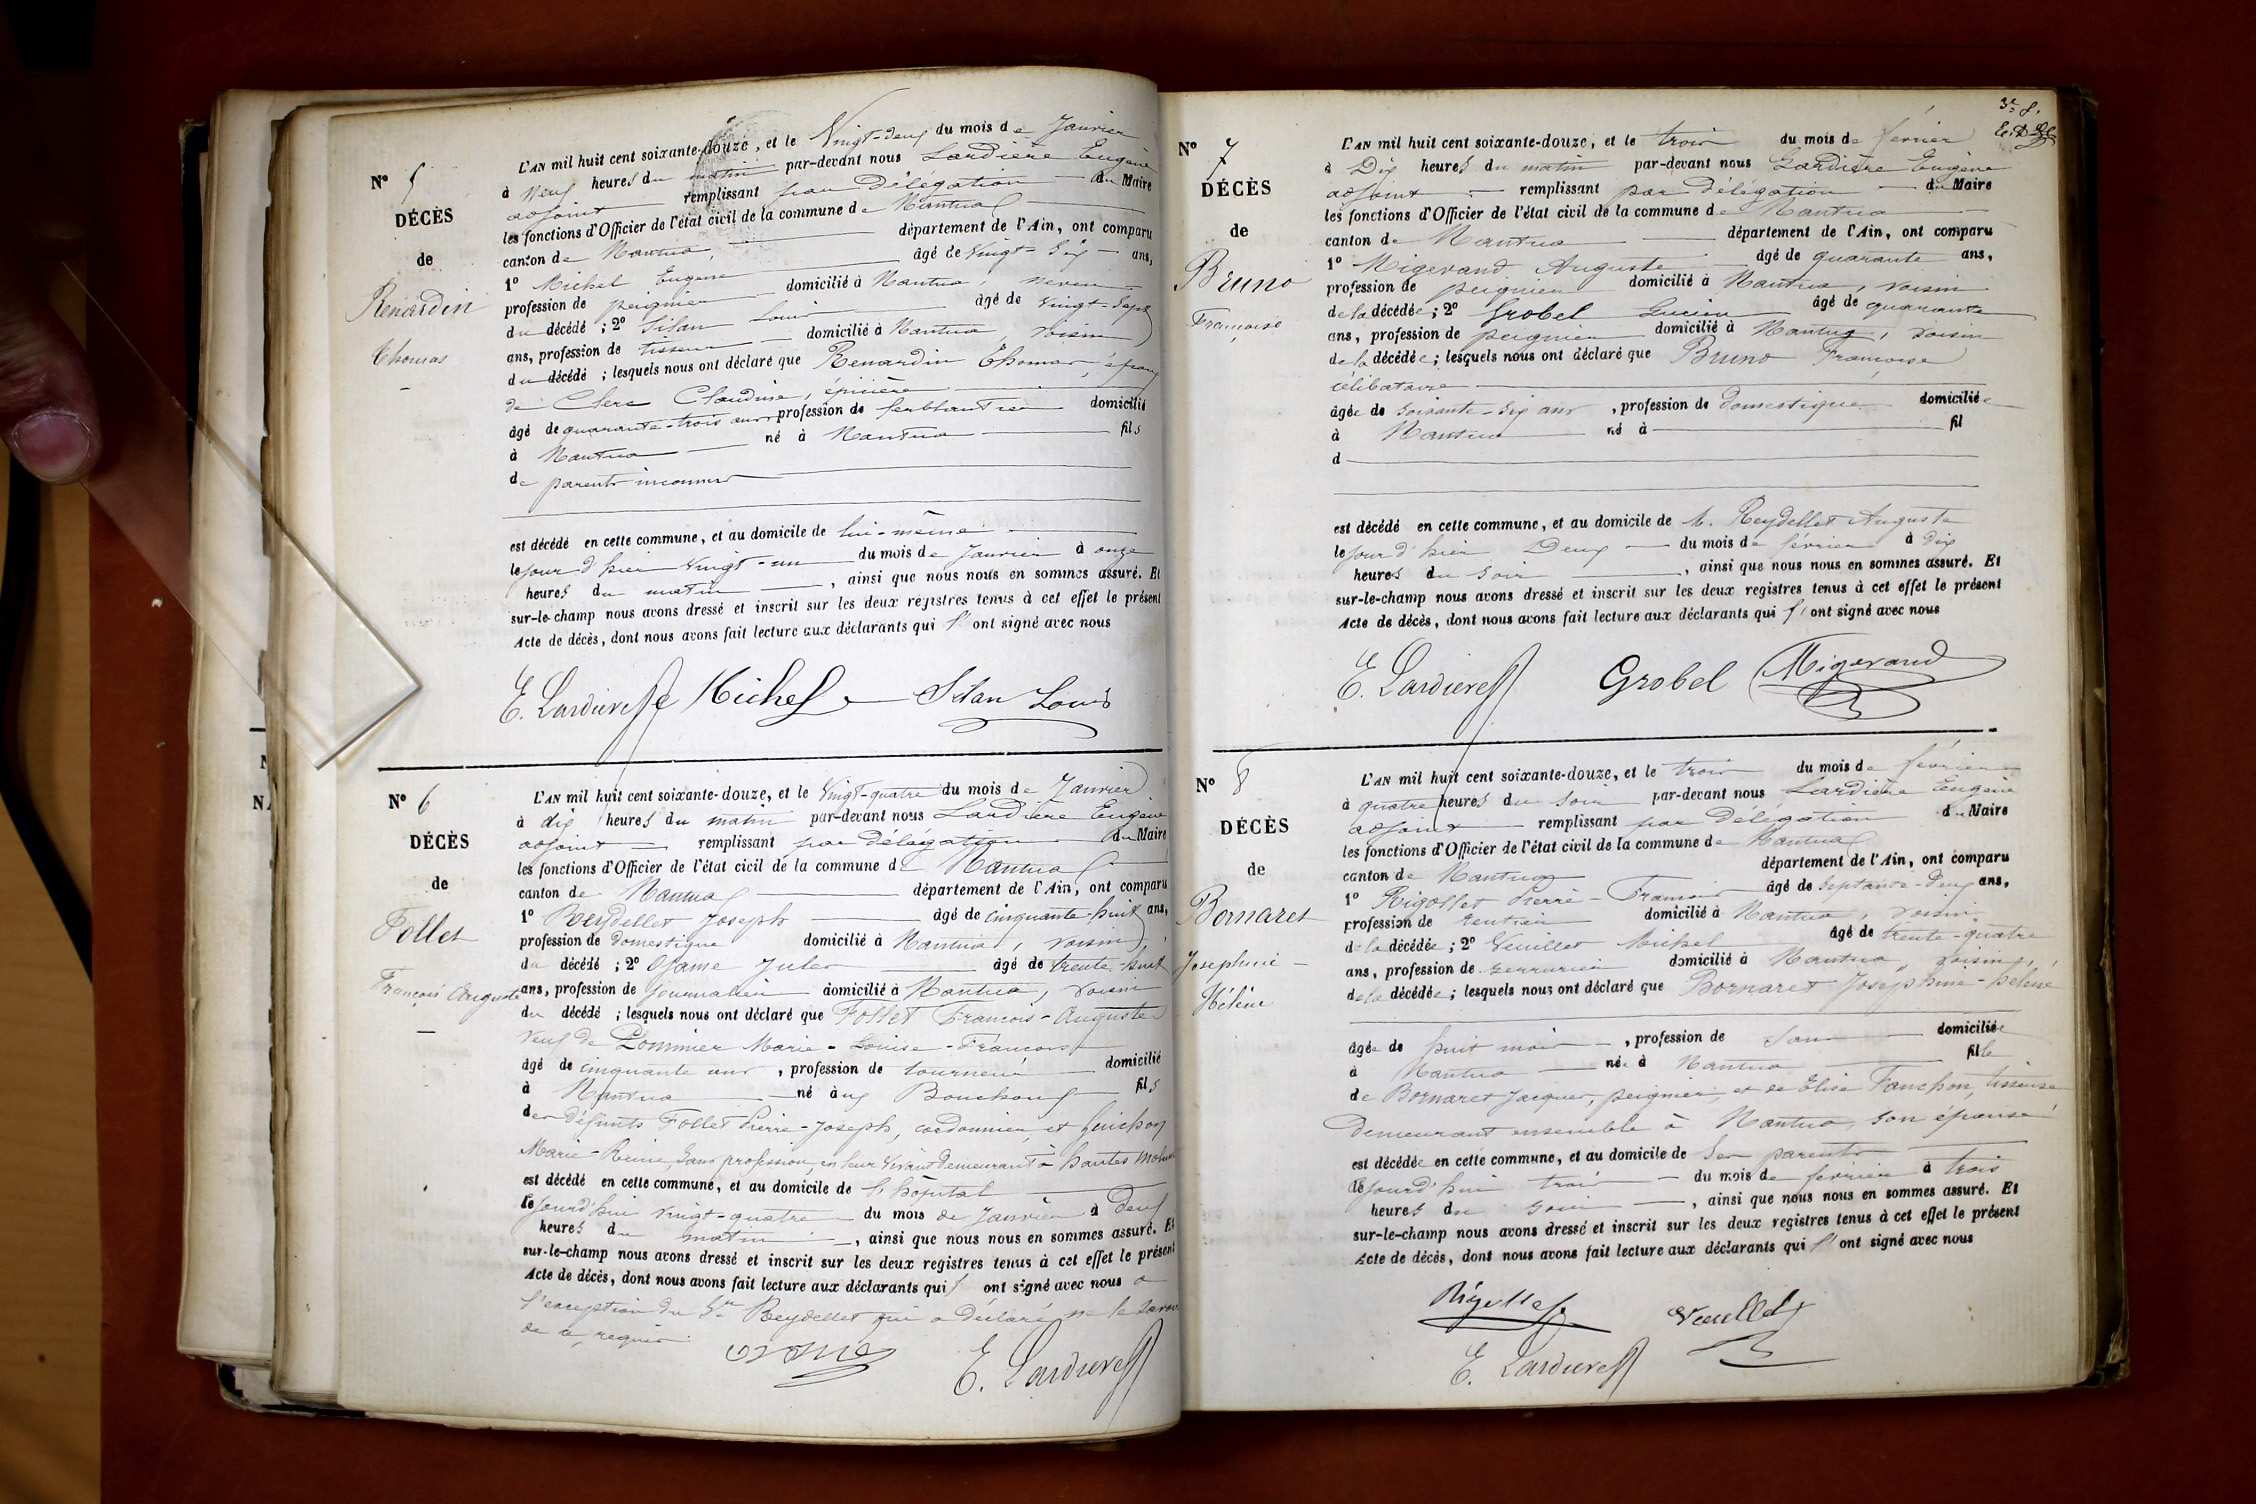 N° 5
DÉCÈS
de
Renardin
Thomas
L'AN mil huit cent soixante-douze, et le Vingt-deux du mois de Janvier
à Neuf heures du matin par-devant nous Lardière Eugène
adjoint remplissant par Délégation du Maire
les fonctions d'Officier de l'état civil de la commune de Nantua
canton de Nantua, département de l'Ain, ont comparu
1° Michel Eugène âgé de Vingt-Six ans,
profession de peignier domicilié à Nantua, neveu
du décédé ; 2° Silan Louis âgé de Vingt Sept
ans, profession de tisseur domicilié à Nantua, voisin
du décédé ; lesquels nous ont déclaré que Renardin Thomas, époux
de Clerc Claudine, épicière
âgé de quarante-trois ans profession de ferblantier domicilié
à Nantua né à Nantua fils
de parents inconnus
est décédé en cette commune, et au domicile de lui-même
le jour d'hier Vingt-un du mois de Janvier à onze
heures du matin, ainsi que nous nous en sommes assuré. Et
sur-le-champ nous avons dressé et inscrit sur les deux registres tenus à cet effet le présent
Acte de décès, dont nous avons fait lecture aux déclarants qui l' ont signé avec nous
E. Lardiere Michel Silan Louis
N° 6
DÉCÈS
de
Follet
François Auguste
L'AN mil huit cent soixante-douze, et le Vingt-quatre du mois de Janvier
à dix heures du matin par-devant nous Lardière Eugène
adjoint remplissant par Délégation du Maire
les fonctions d'Officier de l'état civil de la commune de Nantua
canton de Nantua département de l'Ain, ont comparu
1° Reydellet Joseph âgé de cinquante-huit ans,
profession de domestique domicilié à Nantua, voisin
du décédé ; 2° Ojame Jules âgé de trente-huit
ans, profession de journalier domicilié à Nantua, voisin
du décédé ; lesquels nous ont déclaré que Follet François-Auguste
veuf de Pommier Marie-Louise-Françoise
âgé de cinquante ans, profession de tourneur domicilié
à Nantua né à ux Bouchoux fils
des défunts Follet Pierre-Joseph, cordonnier et
Marie-Reine, Sans profession, en leur Vivant demeurant à hautes
est décédé en cette commune, et au domicile de l'hôpital
le jourd'hui vingt-quatre du mois de Janvier à Deux
heures du matin, ainsi que nous nous en sommes assuré. Et
sur-le-champ nous avons dressé et inscrit sur les deux registres tenus à cet effet le présent
Acte de décès, dont nous avons fait lecture aux déclarants qui l' ont signé avec nous à
l'exception du Sr Reydellet qui a Déclaré ne le savoir
de ce requis.
E. Lardiere
3e f.
N° 7
DÉCÈS
de
Bruno
Françoise
L'AN mil huit cent soixante-douze, et le trois du mois de février
à Dix heures du matin par-devant nous Lardière Eugène
adjoint remplissant par Délégation du Maire
les fonctions d'Officier de l'état civil de la commune de Nantua
canton de Nantua département de l'Ain, ont comparu
1° Migerand Auguste âgé de quarante ans,
profession de peignier domicilié à Nantua, voisin
de la décédée ; 2° Grobel Lucien âgé de quarante
ans, profession de peignier domicilié à Nantua, voisin
de la décédée ; lesquels nous ont déclaré que Bruno Françoise
célibataire
âgée de soixante-dix ans, profession de Domestique domiciliée
à Nantua né à fil
d
est décédé en cette commune, et au domicile de M. Reydellet Auguste
le jour d'hier Deux du mois de février à dix
heures du soir, ainsi que nous nous en sommes assuré. Et
sur-le-champ nous avons dressé et inscrit sur les deux registres tenus à cet effet le présent
Acte de décès, dont nous avons fait lecture aux déclarants qui l' ont signé avec nous
E. Lardiere Grobel Migerand
N° 8
DÉCÈS
de
Bornaret
Josephine
Hélène
L'AN mil huit cent soixante-douze, et le trois du mois de février
à quatre heures du soir par-devant nous Lardière Eugène
adjoint remplissant par Délégation du Maire
les fonctions d'Officier de l'état civil de la commune de Nantua
canton de Nantua département de l'Ain, ont comparu
1° Rigollet Pierre-François âgé de Septante-deux ans,
profession de rentier domicilié à Nantua, voisin
de la décédée ; 2° Veuillet Michel âgé de trente-quatre
ans, profession de serrurier domicilié à Nantua, voisin,
de la décédée ; lesquels nous ont déclaré que Bornaret Josephine-hélène
âgée de huit mois, profession de Sans domiciliée
à Nantua née à Nantua fille
de Bornaret Jacques, peignier, et de Elise Fanchon, tisseuse
Demeurant ensemble à Nantua, son épouse
est décédée en cette commune, et au domicile de Ses parents
le jourd'hui trois du mois de février à trois
heures du soir, ainsi que nous nous en sommes assuré. Et
sur-le-champ nous avons dressé et inscrit sur les deux registres tenus à cet effet le présent
Acte de décès, dont nous avons fait lecture aux déclarants qui l' ont signé avec nous
Rigollet Veuillet
E. Lardiere